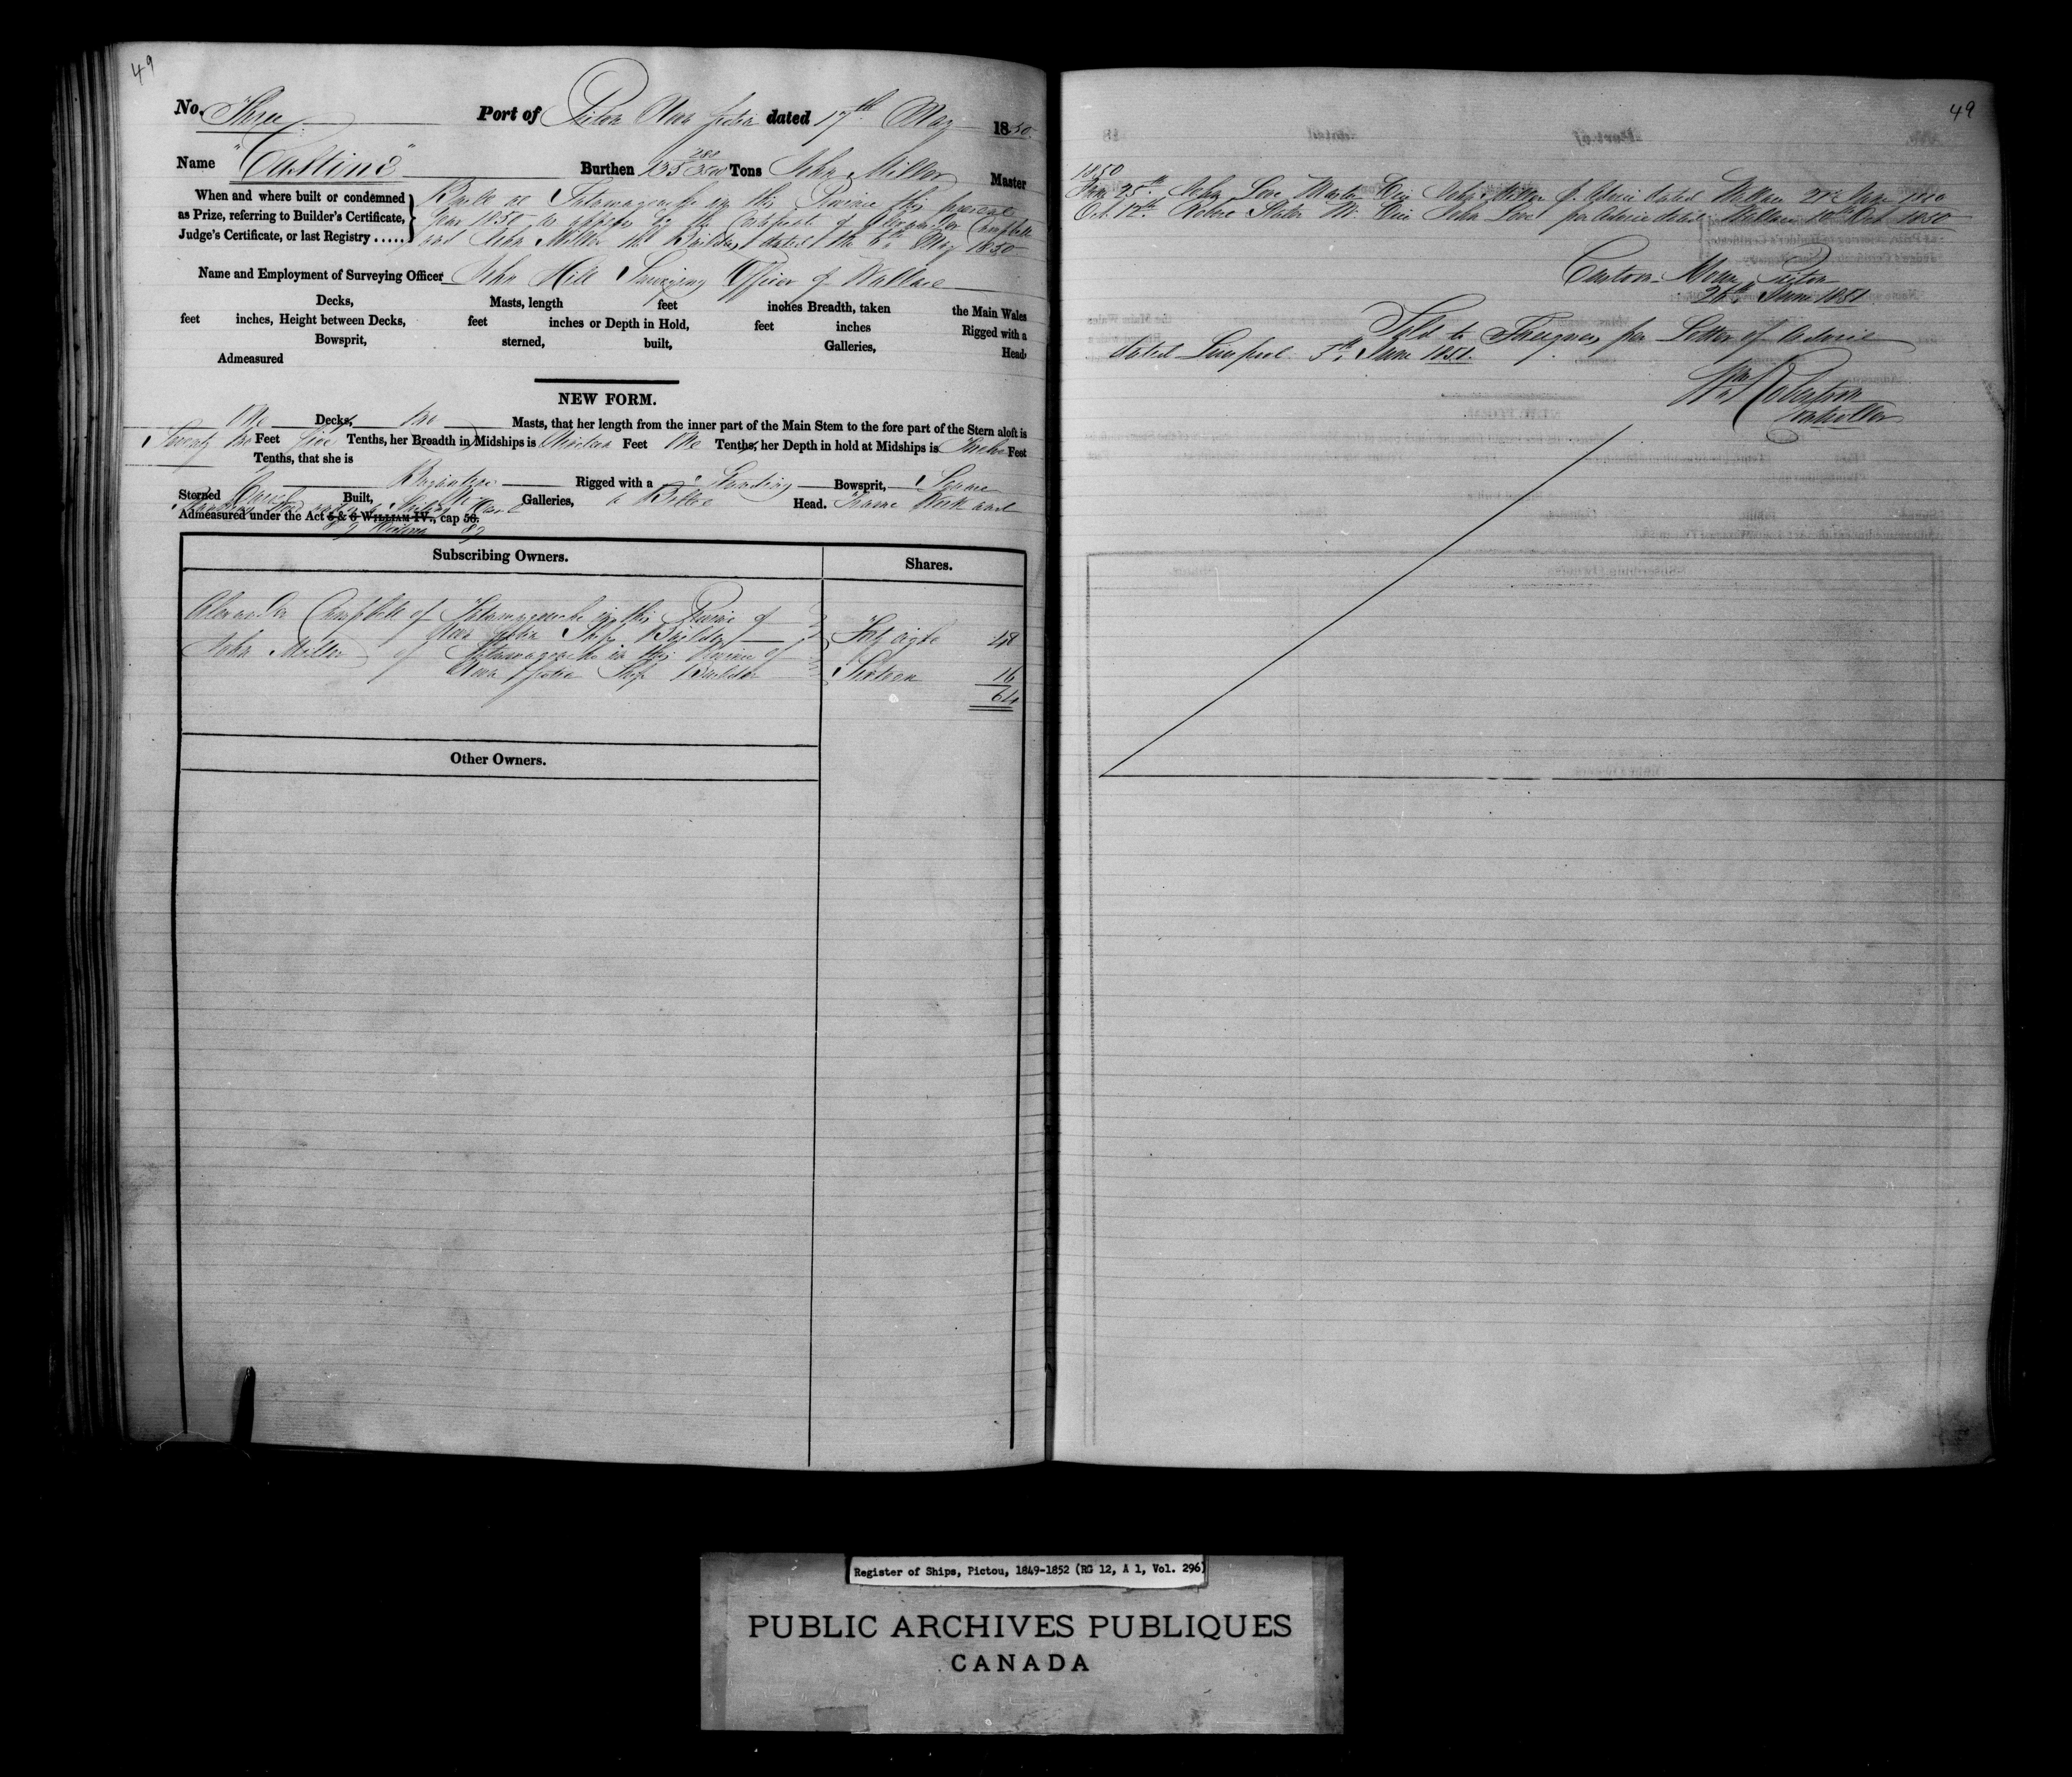 49
No. Three Port of Pictou Nova Scotia dated 17th May 1850.
Name "Castine" Burthen 135 280/3500 Tons John Miller Master
When and where built or condemned
as Prize, referring to Builder's Certificate,
Judge's Certificate, or last Registry .....
Built at Tatamagouche in this Province this present
Year 1850 as appears by the Certificate of Alexander Campbell
and John Miller the Builders dated the 6th May 1850
Name and Employment of Surveying Officer John Hill Surveying Officer of Wallace
Decks, Masts, length feet inches Breadth, taken the Main Wales
feet inches, Height between Decks, feet inches or Depth in Hold, feet inches Rigged with a
Bowsprit, sterned, built, Galleries, Head,
Admeasured
NEW FORM.
One Decks, two Masts, that her length from the inner part of the Main Stem to the fore part of the Stern aloft is
Seventy two Feet five Tenths, her Breadth in Midships is Nineteen Feet One Tenths, her Depth in hold at Midships is Twelve Feet
Tenths, that she is
Brigantine Rigged with a Standing Bowsprit, Square
Sterned Carvel Built, No Galleries, a Billet Head. Frame Work wood
Admeasured under the Act 5 & 6 WILLIAM IV., cap 56.
Subscribing Owners. Shares.
Alexander Campbell of Tatamagouche in this Province of
Nova Scotia Ship Builder Forty eight 48
John Miller of Tatamagouche in this Province of
Nova Scotia Ship Builder Sixteen 16
64
Other Owners.
49
1850
June 25th John Love Master Vice John Miller p. Advice dated Wallace 21st June 1850
Oct. 17th Robert Slater Mr. Vice John Love per Advice dated Wallace 10th Oct 1850
Custom House Pictou
26th June 1851
Sold to Foreigners per Letter of Advice
dated Liverpool 5th June 1851.
Wm Robertson
Controller
Register of Ships, Pictou, 1849-1852 (RG 12, A 1, Vol. 296)
PUBLIC ARCHIVES PUBLIQUES
CANADA